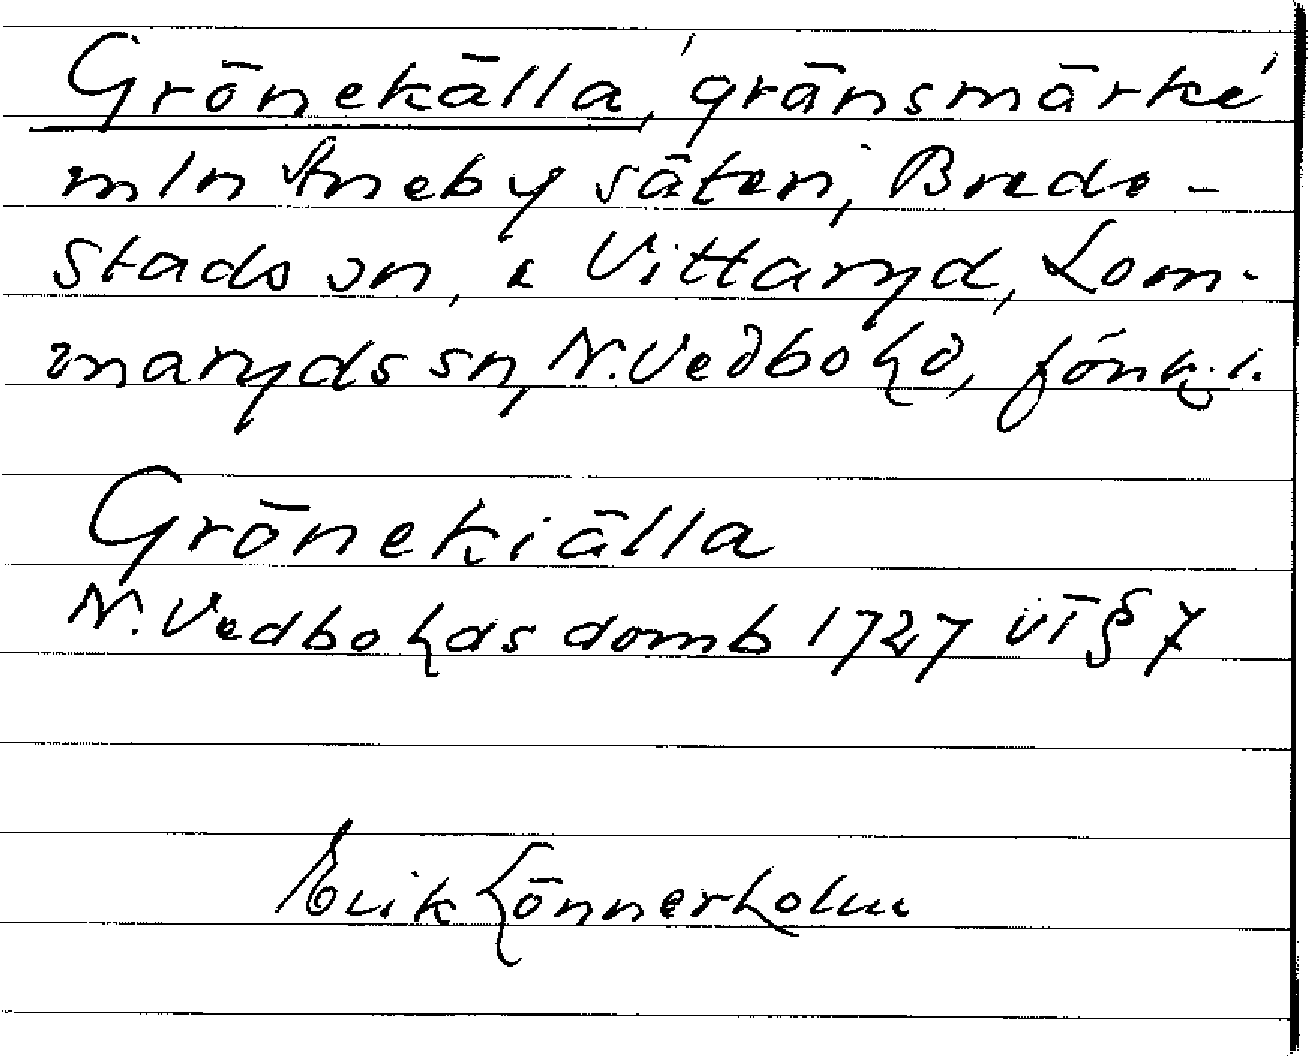 Grönekälla, 'gränsmärke'
mln Aneby säteri, Breda-
stads sn, o Vittaryd, Lom-
maryds sn, N. Vedbo hd, Jönk. l.
Grönekiälla
N. Vedbo hds domb 1727 VT § 7
Erik Lönnerholm